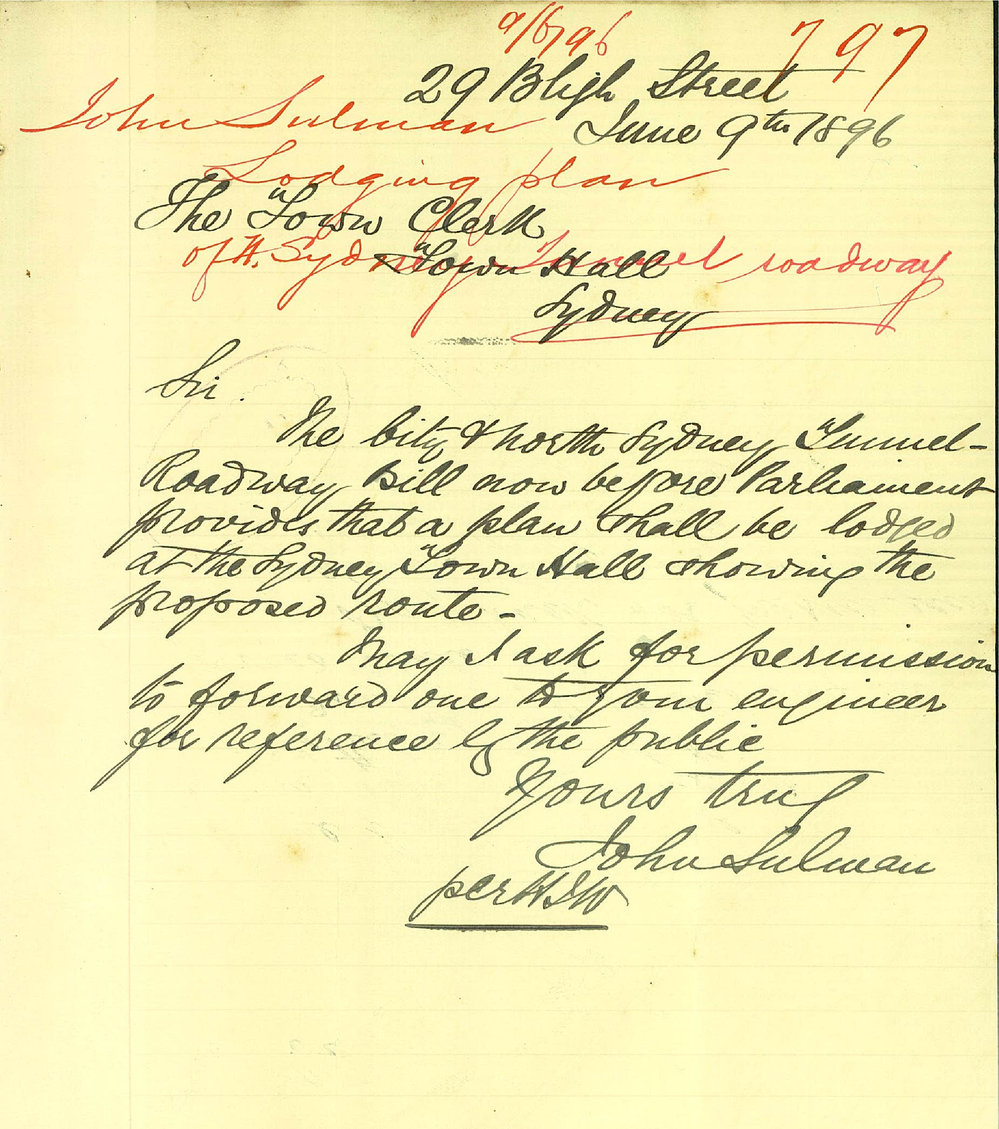 9/6/96
797
29 Bligh Street
John Sulman
June 9th 1896
Lodging plan
The Town Clerk
of N. Sydney Tunnel roadway
Town Hall
Sydney
Sir.
The City & North Sydney Tunnel-
Roadway Bill now before Parliament
provides that a plan shall be lodged
at the Sydney Town Hall showing the
proposed route -
May I ask for permission
to forward one to your engineer
for reference by the public
Yours truly
John Sulman
per